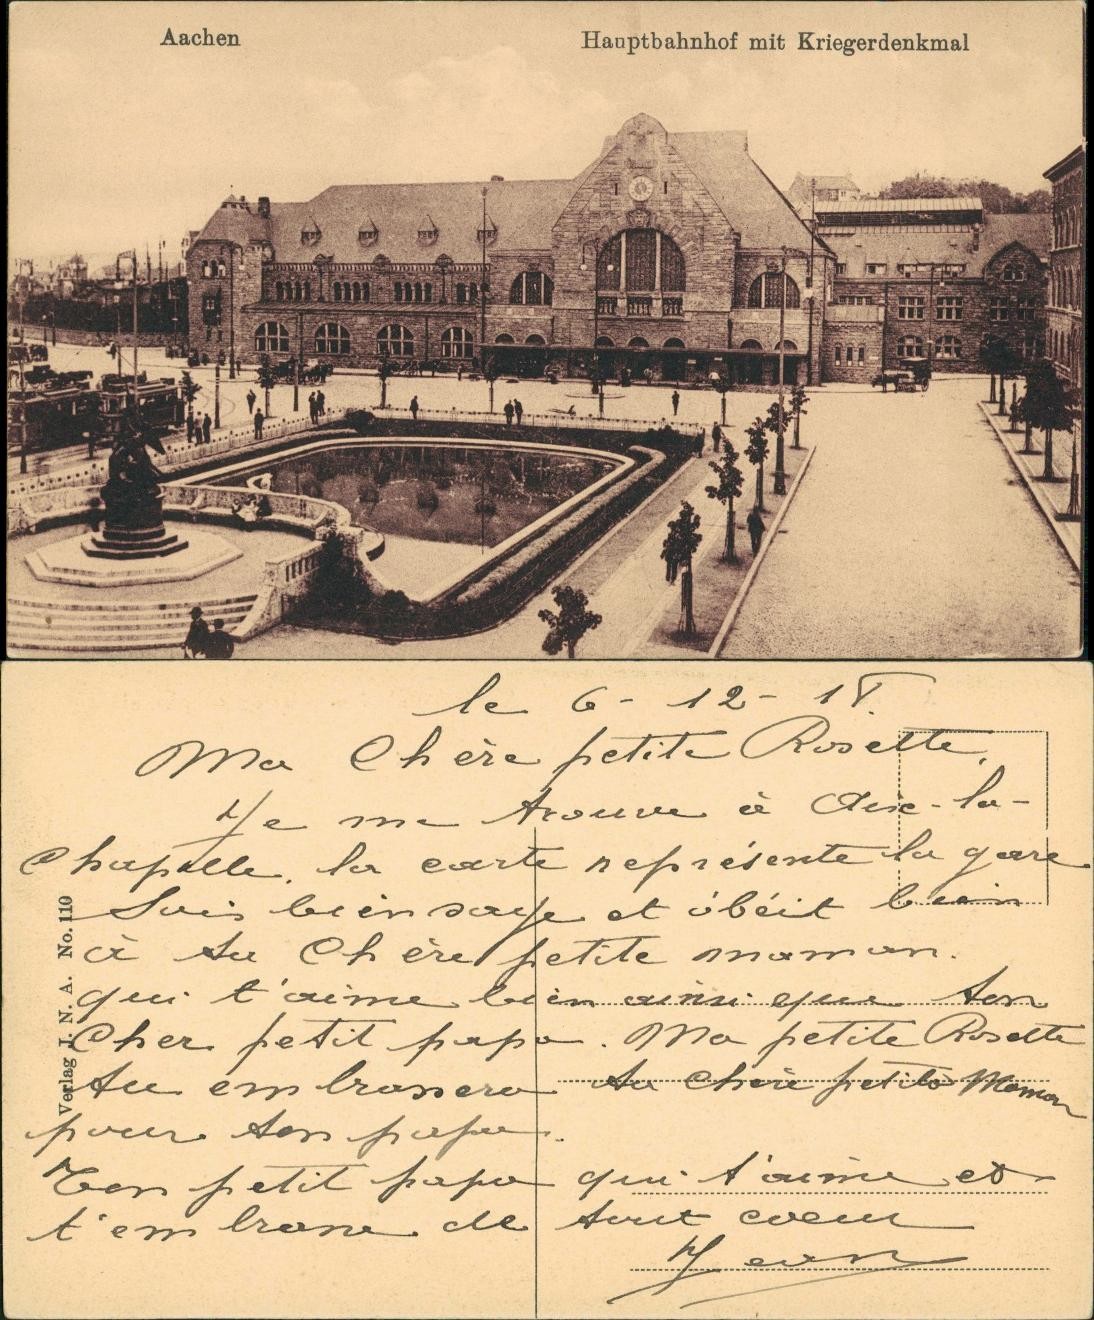 Aachen
Hauptbahnhof mit Kriegerdenkmal
le 6-12-18.
Ma Chère petite Rosette,
Je me trouve à Aix-la-
Chapelle, la carte représente la gare
Sois bien sage et obéit bien
à ta Chère petite maman.
qui t'aime bien ainsi que ton
Cher petit papa. Ma petite Rosette
tu embrassera ta Chère petite Maman
pour ton papa.
Ton petit papa qui t'aime et
t'embrasse de tout coeur
Jean
Verlag J. N. A. No. 110